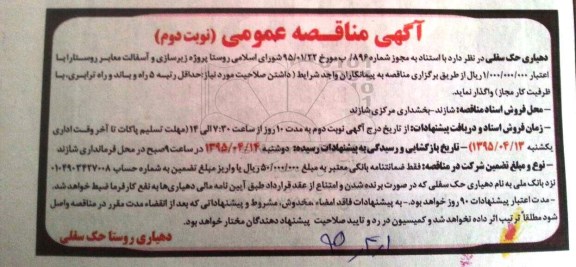 آگهی مناقصه عمومی (نوبت دوم)
دهیاری حک سفلی در نظر دارد با استناد به مجوز شماره ۸۹۶/ب مورخ ۹۵/۰۱/۲۲ شورای اسلامی روستا پروژه زیرسازی و آسفالت معابر روستا را با
اعتبار ۱/۰۰۰/۰۰۰/۰۰۰ ریال از طریق برگزاری مناقصه به پیمانکاران واجد شرایط (داشتن صلاحیت مورد نیاز حداقل رتبه ۵ راه و باند و راه ترابری، با
ظرفیت کار مجاز) واگذار نماید.
- محل فروش اسناد مناقصه: شازند - بخشداری مرکزی شازند
- زمان فروش اسناد و دریافت پیشنهادات: از تاریخ درج آگهی نوبت دوم به مدت ۱۰ روز از ساعت ۷:۳۰ الی ۱۴ (مهلت تسلیم پاکات تا آخر وقت اداری
یکشنبه ۱۳۹۵/۰۴/۱۳) - تاریخ بازگشایی و رسیدگی به پیشنهادات رسیده: دوشنبه ۱۳۹۵/۰۴/۱۴ در ساعت ۹ صبح در محل فرمانداری شازند
- نوع و مبلغ تضمین شرکت در مناقصه: فقط ضمانتنامه بانکی معتبر به مبلغ ۵۰/۰۰۰/۰۰۰ ریال یا واریز مبلغ تضمین به شماره حساب ۰۱۰۴۹۰۳۴۲۷۰۰۸
نزد بانک ملی به نام دهیاری حک سفلی که در صورت برنده شدن و امتناع از عقد قرارداد طبق آیین نامه مالی دهیاری‌ها به نفع کارفرما ضبط خواهد شد.
- مدت اعتبار پیشنهادات ۹۰ روز خواهد بود. - به پیشنهادات فاقد امضاء، مخدوش، مشروط و پیشنهاداتی که بعد از انقضاء مدت مقرر در مناقصه واصل
شود مطلقاً ترتیب اثر داده نخواهد شد و کمیسیون در رد و تایید صلاحیت پیشنهاد دهندگان مختار خواهد بود.
دهیاری روستا حک سفلی